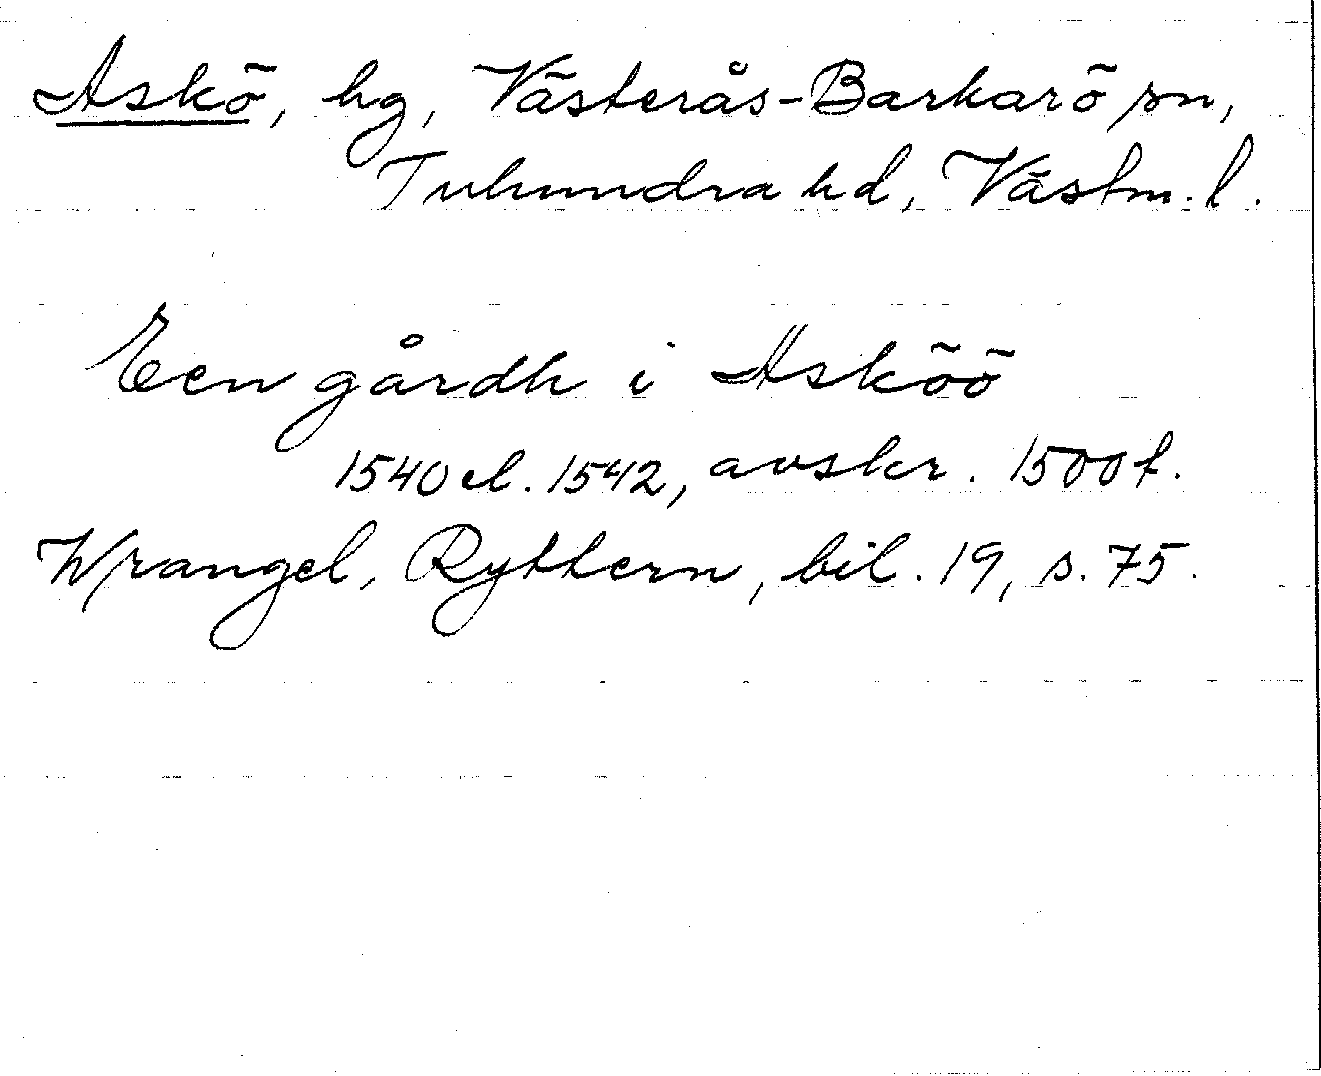 Askö, hg, Västerås-Barkarö sn,
Tuhundra hd, Västm. l.
Een gårdh i Asköö
1540 el. 1542, avskr. 1500 t.
Wrangel, Ryttern, bil. 19, s. 75.